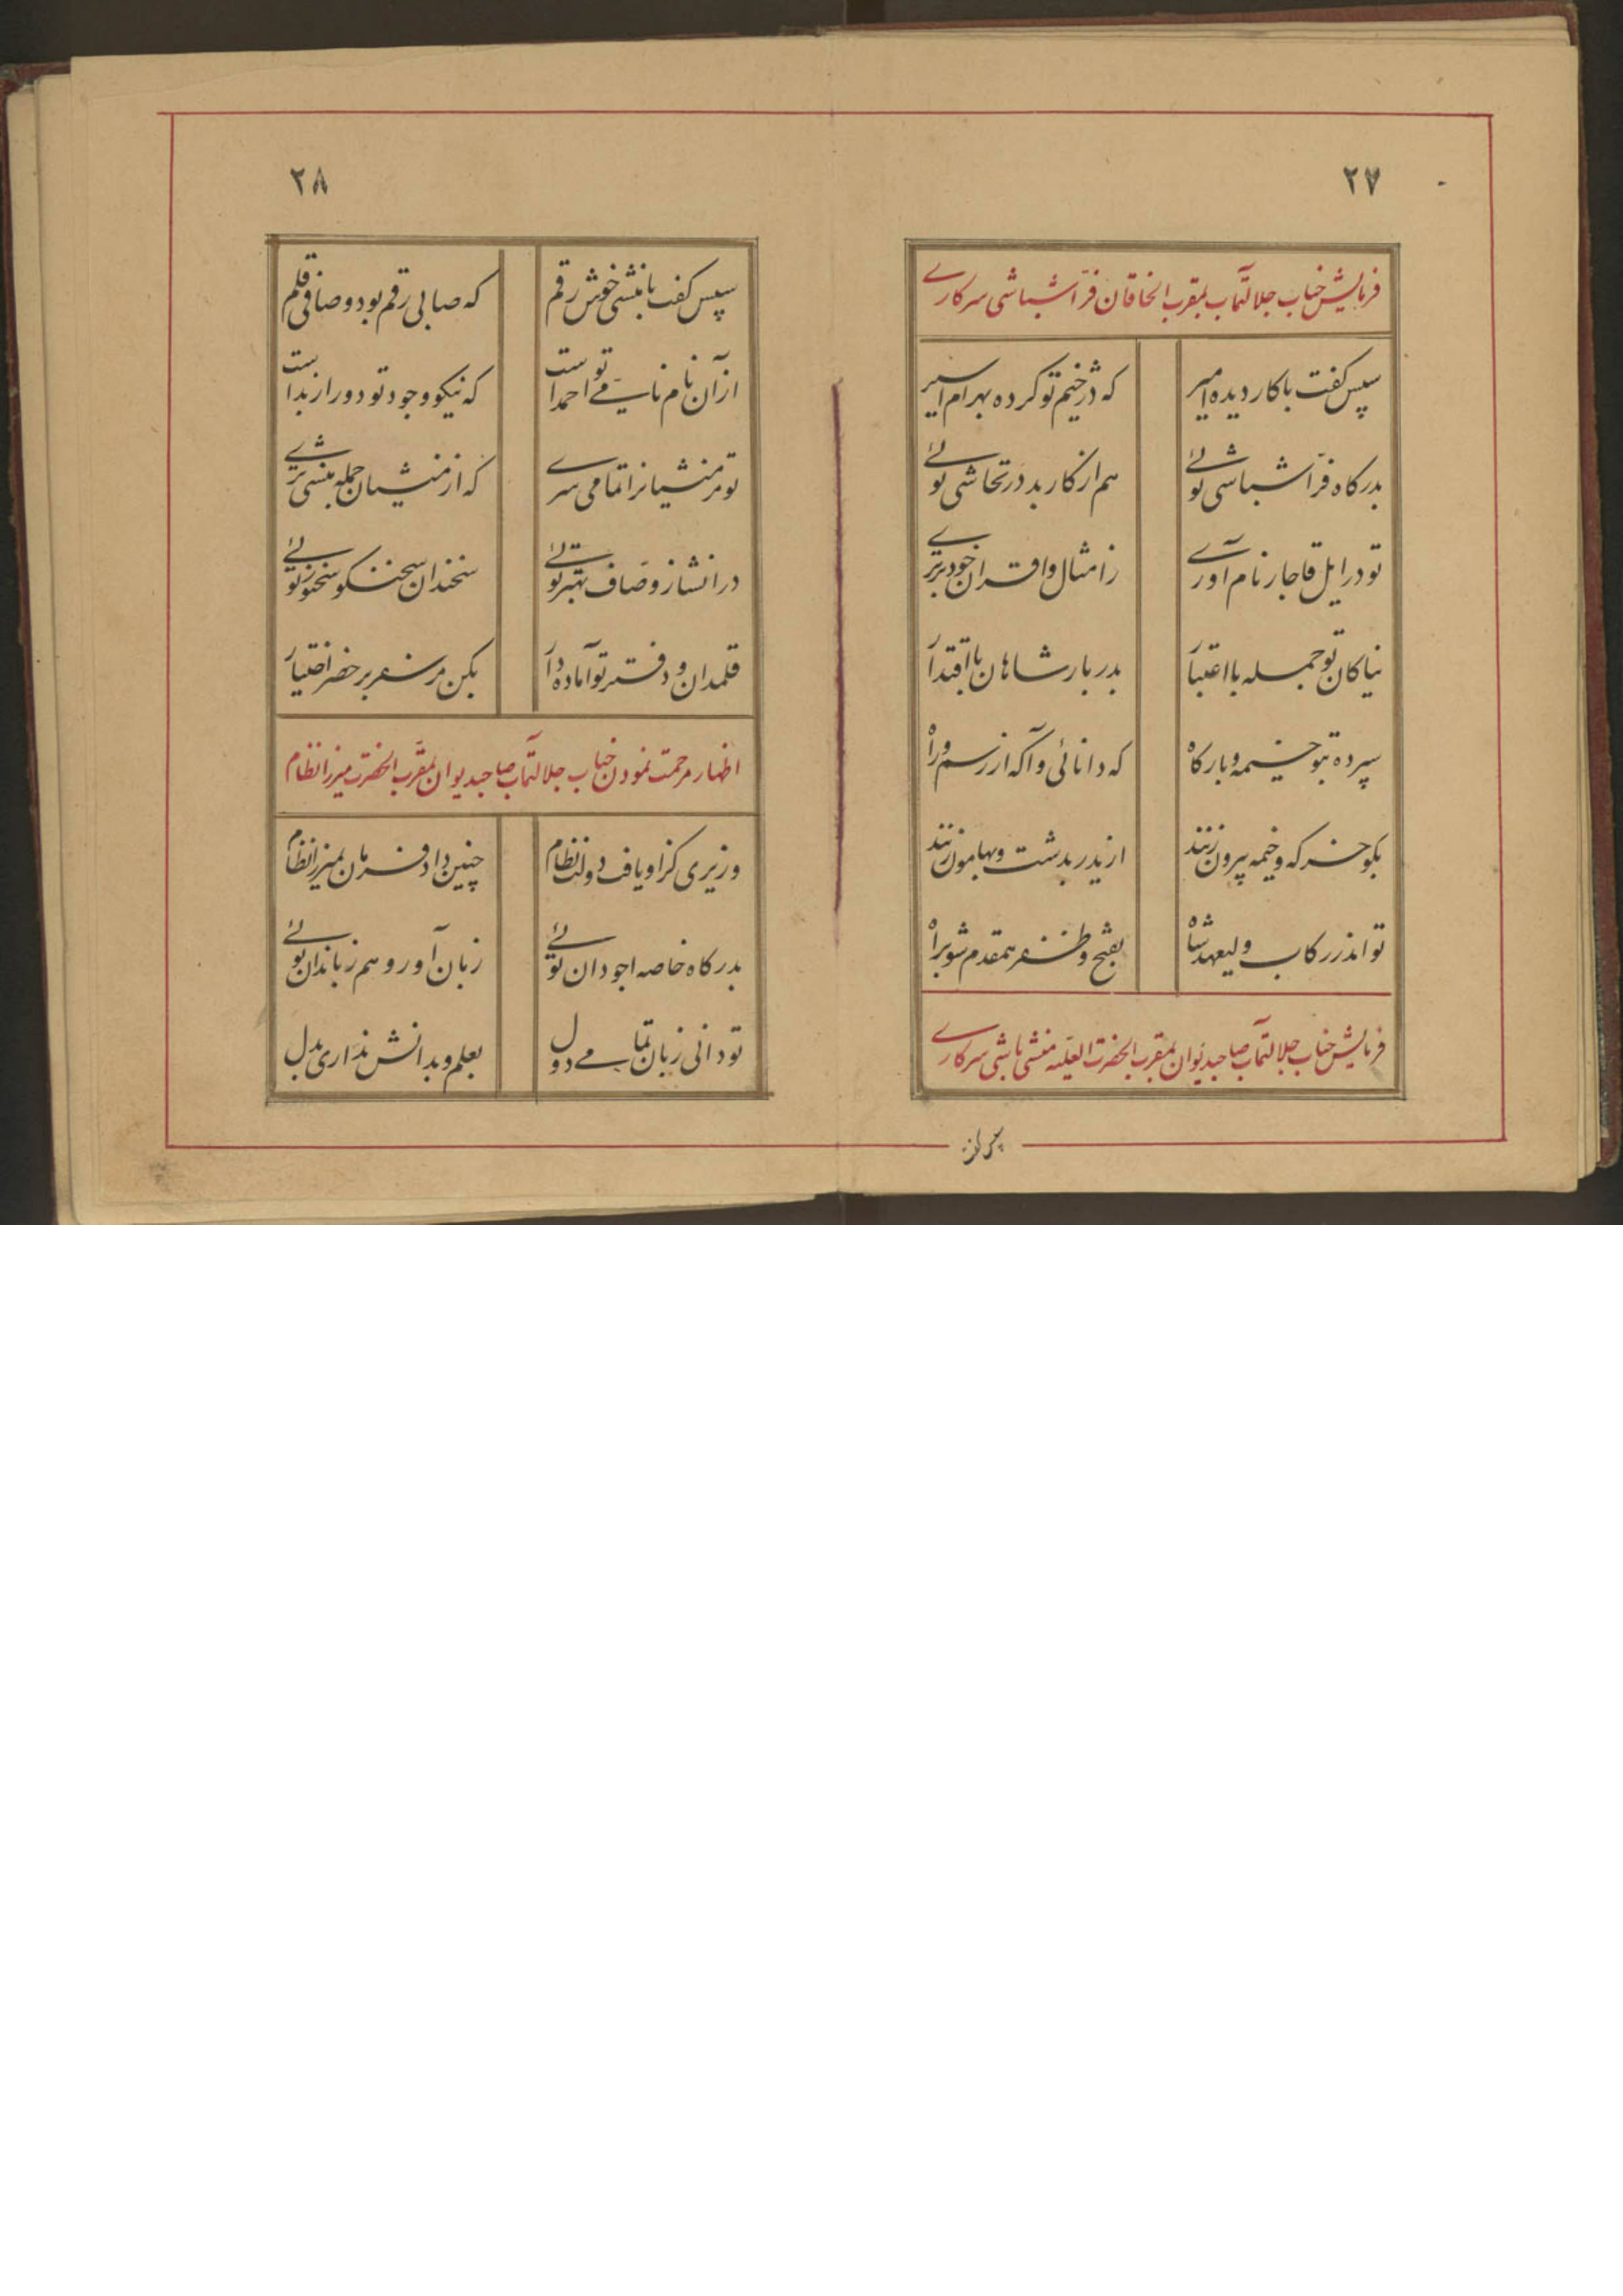 ۲۷
فرمایش جناب جلالتمآب بمقرب الخاقان فرّاشباشی سرکاری
سپس کفت باکار دیده امیر
که دژخیم تو کرده بهرام اسیر
بدرکاه فرّاشباشی توئی
هم از کار بد در تحاشی توئی
تو در ایل قاجار نام آوری
ز امثال و اقران خود برتری
نیاکان تو جمله با اعتبار
بدربار شاهان با اقتدار
سپرده بتو خیمه و بارکاه
که دانائی و آکه از رسم و راه
بکو خرکه و خیمه بیرون زنند
از یدر بدشت و بهامون زنند
تو اندر رکاب ولیعهد شاه
بفتح و ظفر همقدم شو براه
فرمایش جناب جلالتمآب صاحبدیوان بمقرب الحضرت العلیّه منشی باشی سرکاری
سپس
۲۸
سپس کفت با منشی خوش رقم
که صابی رقم بود و صافی قلم
از آن نام نامی احمد تو است
که نیکو وجود تو دور از بد است
تو مر منشیانرا تمامی سری
که از منشیان جمله منشی تری
در انشا ز وصّاف بهتر توئی
سخندان سخنکو سخنور توئی
قلمدان و دفتر تو آماده دار
بکن مر سفر بر حضر اختیار
اظهار مرحمت نمودن جناب جلالتمآب صاحبدیوان بمقرّب الحضرت میرزا نظام
وزیری کز او یافت دولت نظام
چنین داد فرمان بمیرزا نظام
بدرکاه خاصه اجودان توئی
زبان آور و هم زباندان توئی
تو دانی زبان تمامی دول
بعلم و بدانش نداری بدل